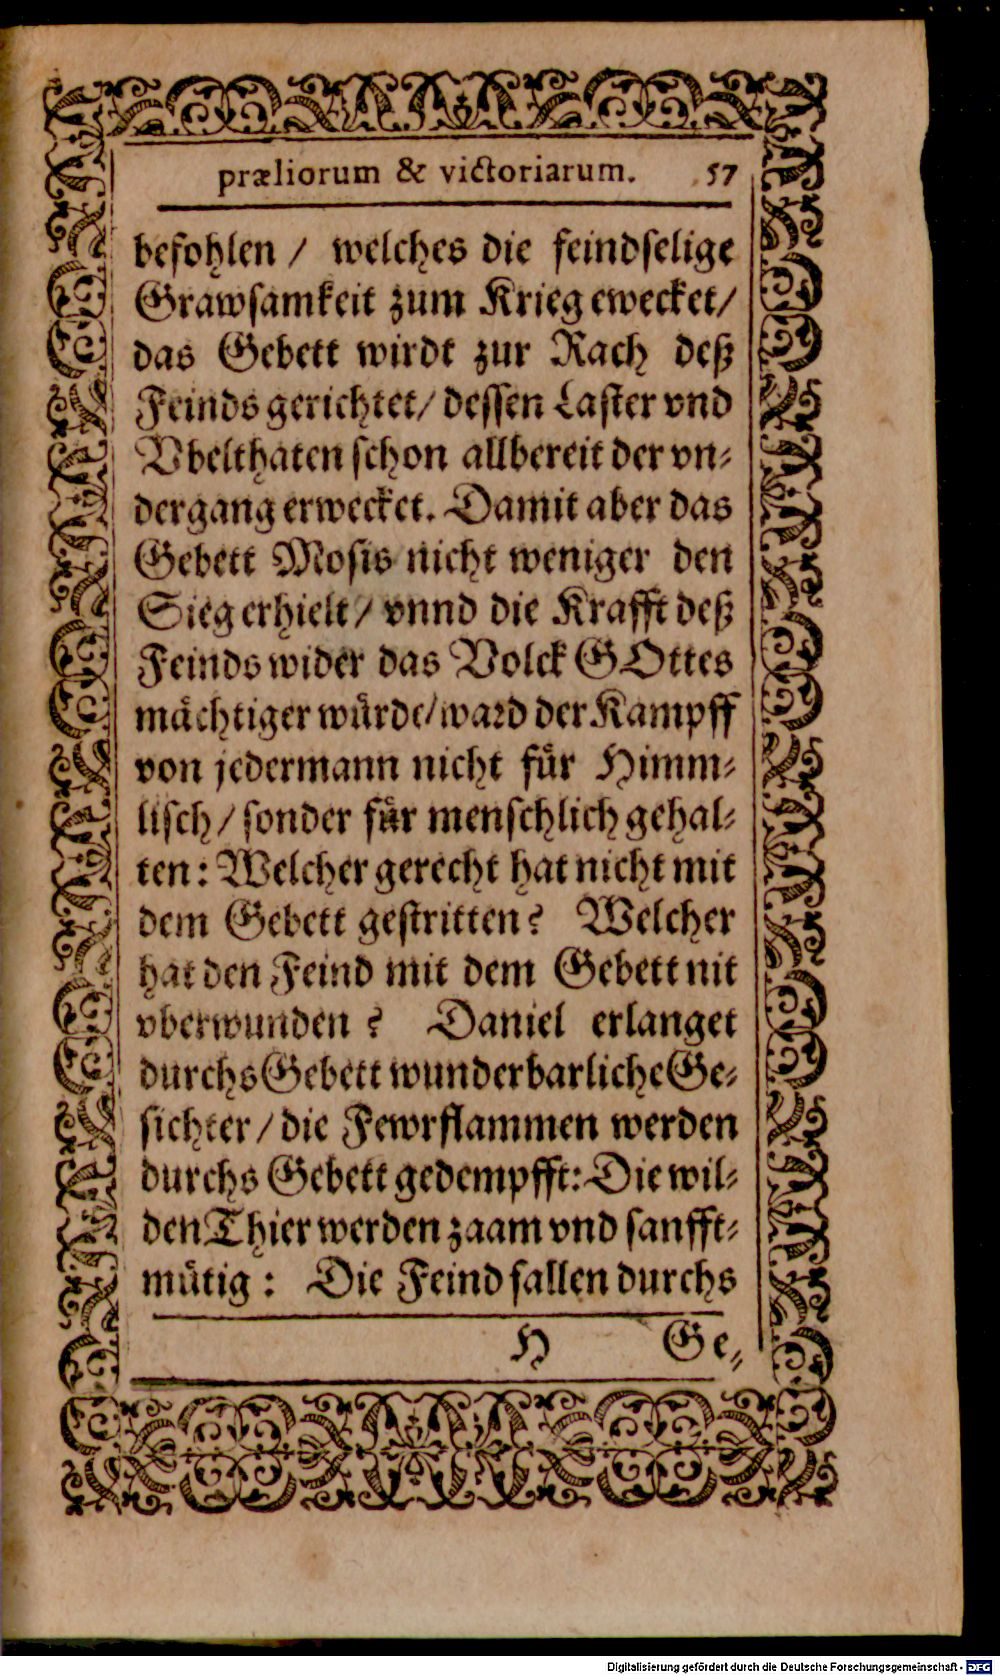 præliorum & victoriarum. 57
befohlen / welches die feindselige
Grawsamkeit zum Krieg ewecket/
das Gebett wirdt zur Rach deß
Feinds gerichtet/ dessen Laster vnd
Vbelthaten schon allbereit der vn-
dergang erwecket. Damit aber das
Gebett Mosis nicht weniger den
Sieg erhielt / vnnd die Krafft deß
Feinds wider das Volck GOttes
mächtiger würde/ ward der Kampff
von jedermann nicht für Himm-
lisch / sonder für menschlich gehal-
ten: Welcher gerecht hat nicht mit
dem Gebett gestritten? Welcher
hat den Feind mit dem Gebett nit
vberwunden ? Daniel erlanget
durchs Gebett wunderbarliche Ge-
sichter / die Fewrflammen werden
durchs Gebett gedempfft: Die wil-
den Thier werden zaam vnd sanfft-
mütig : Die Feind fallen durchs
H Ge-
Digitalisierung gefördert durch die Deutsche Forschungsgemeinschaft - DFG